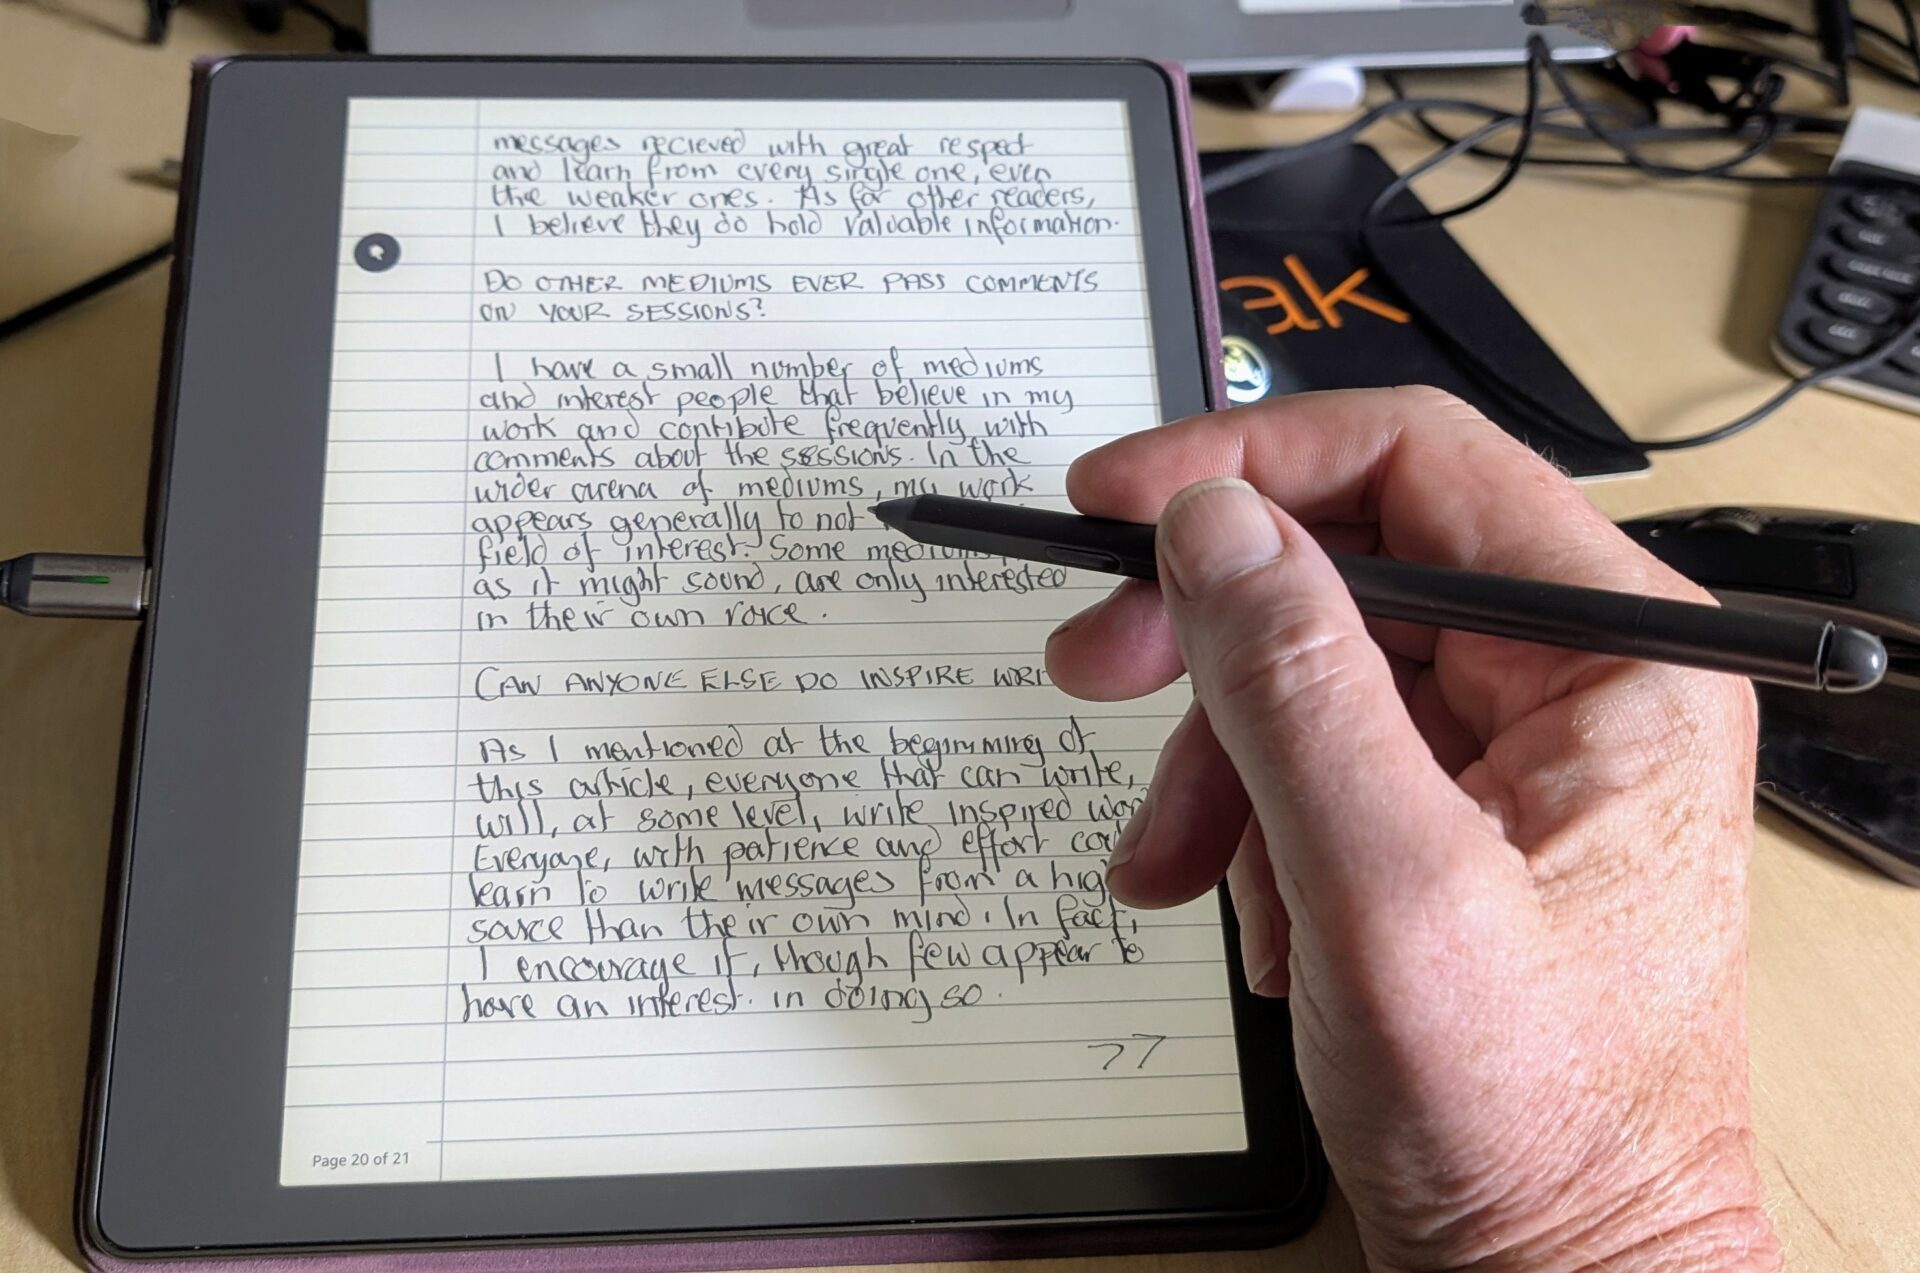 messages recieved with great respect
and learn from every single one, even
the weaker ones. As for other readers,
I believe they do hold valuable information.
DO OTHER MEDIUMS EVER PASS COMMENTS
ON YOUR SESSIONS?
I have a small number of mediums
and interest people that believe in my
work and contibute frequently with
comments about the sessions. In the
wider arena of mediums, my work
appears generally to not
field of interest. Some mediums
as it might sound, are only interested
in their own voice.
CAN ANYONE ELSE DO INSPIRE
As I mentioned at the beginning of
this article, everyone that can write,
will, at some level, write inspired
Everyone, with patience and effort
learn to write messages from a
source than their own mind. In fact,
I encourage it, though few appear to
have an interest. in doing so.
77
Page 20 of 21
ak